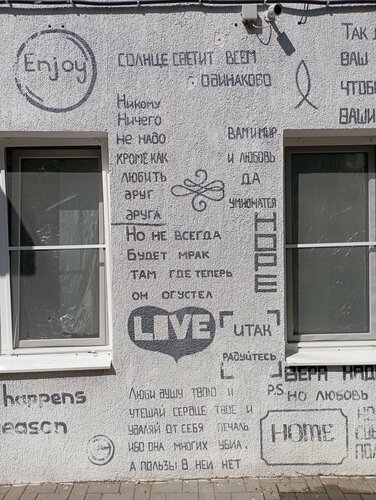 Enjoy
СОЛНЦЕ СВЕТИТ ВСЕМ
ОДИНАКОВО
Так
ВАШ
ЧТОБЫ
ВАШИ
Никому
Ничего
не надо
кроме как
любить
друг
друга
ВАМ И МИР
И ЛЮБОВЬ
ДА
УМНОЖАТСЯ
HOPE
Но не всегда
Будет мрак
там где теперь
он огустел
LIVE
ИТАК
РАДУЙТЕСЬ
happens
reason
ЛЮБИ ДУШУ ТВОЮ И
УТЕШАЙ СЕРДЦЕ ТВОЕ И
УДАЛЯЙ ОТ СЕБЯ ПЕЧАЛЬ
ИБО ОНА МНОГИХ УБИЛА,
А ПОЛЬЗЫ В НЕЙ НЕТ
ВЕРА НАД
P.S. НО ЛЮБОВЬ
HOME